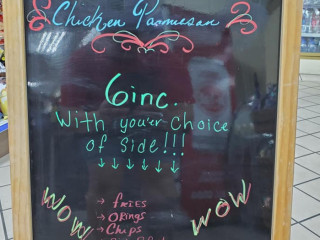 Chicken Parmiesan
6inc.
With you'er Choice
of Side!!!
→ fries
→ O Rings
→ Chips
WOW
WOW